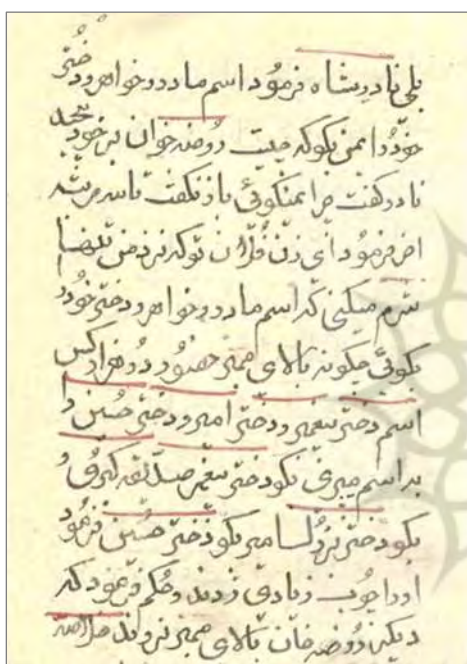 بلی نادرشاه فرمود اسم مادر و خواهر و دختر
خود را بمن بگو که چیست روضه خوان بر خود پیچید
نادر گفت چرا نمیگوئی باز نگفت تا سه مرتبه
اخر فرمود ای زن فلان تو که نزد من تنها
شرم میکنی که اسم مادر و خواهر و دختر خود را
بگوئی چگونه بالای ممبر حضور دو هزار کس
اسم دختر پیغمبر و دختر امیر و دختر حسین را
به اسم میبری بگو دختر پیغمبر صدیقه کبری
بگو دختر بزرگ امیر بگو دختر حسین فرمود
او را چوب زیادی زدند و حکم فرمود که
دیگر روضه خان بالای ممبر نروند خلاصه